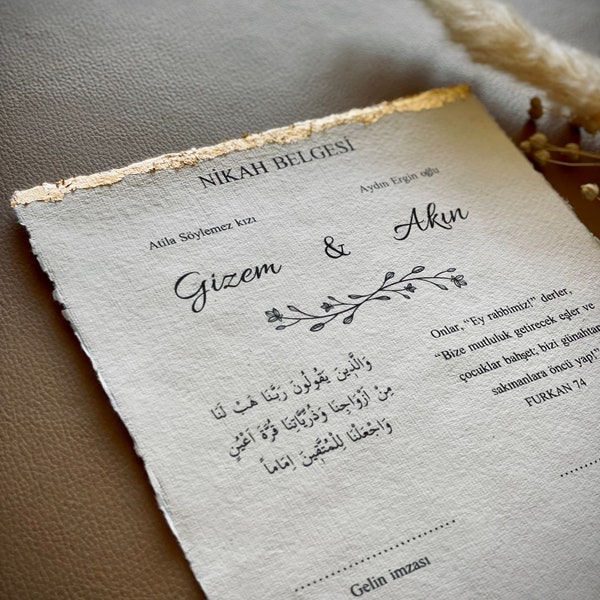 NİKAH BELGESİ
Atila Söylemez kızı
Aydın Ergin oğlu
Gizem & Akın
وَالَّذِينَ يَقُولُونَ رَبَّنَا هَبْ لَنَا
مِنْ اَزْوَاجِنَا وَذُرِّيَّاتِنَا قُرَّةَ اَعْيُنٍ
وَاجْعَلْنَا لِلْمُتَّقِينَ اِمَاماً
Onlar, “Ey rabbimiz!” derler,
“Bize mutluluk getirecek eşler ve
çocuklar bahşet; bizi günahtan
sakınanlara öncü yap!”
FURKAN 74
Gelin imzası